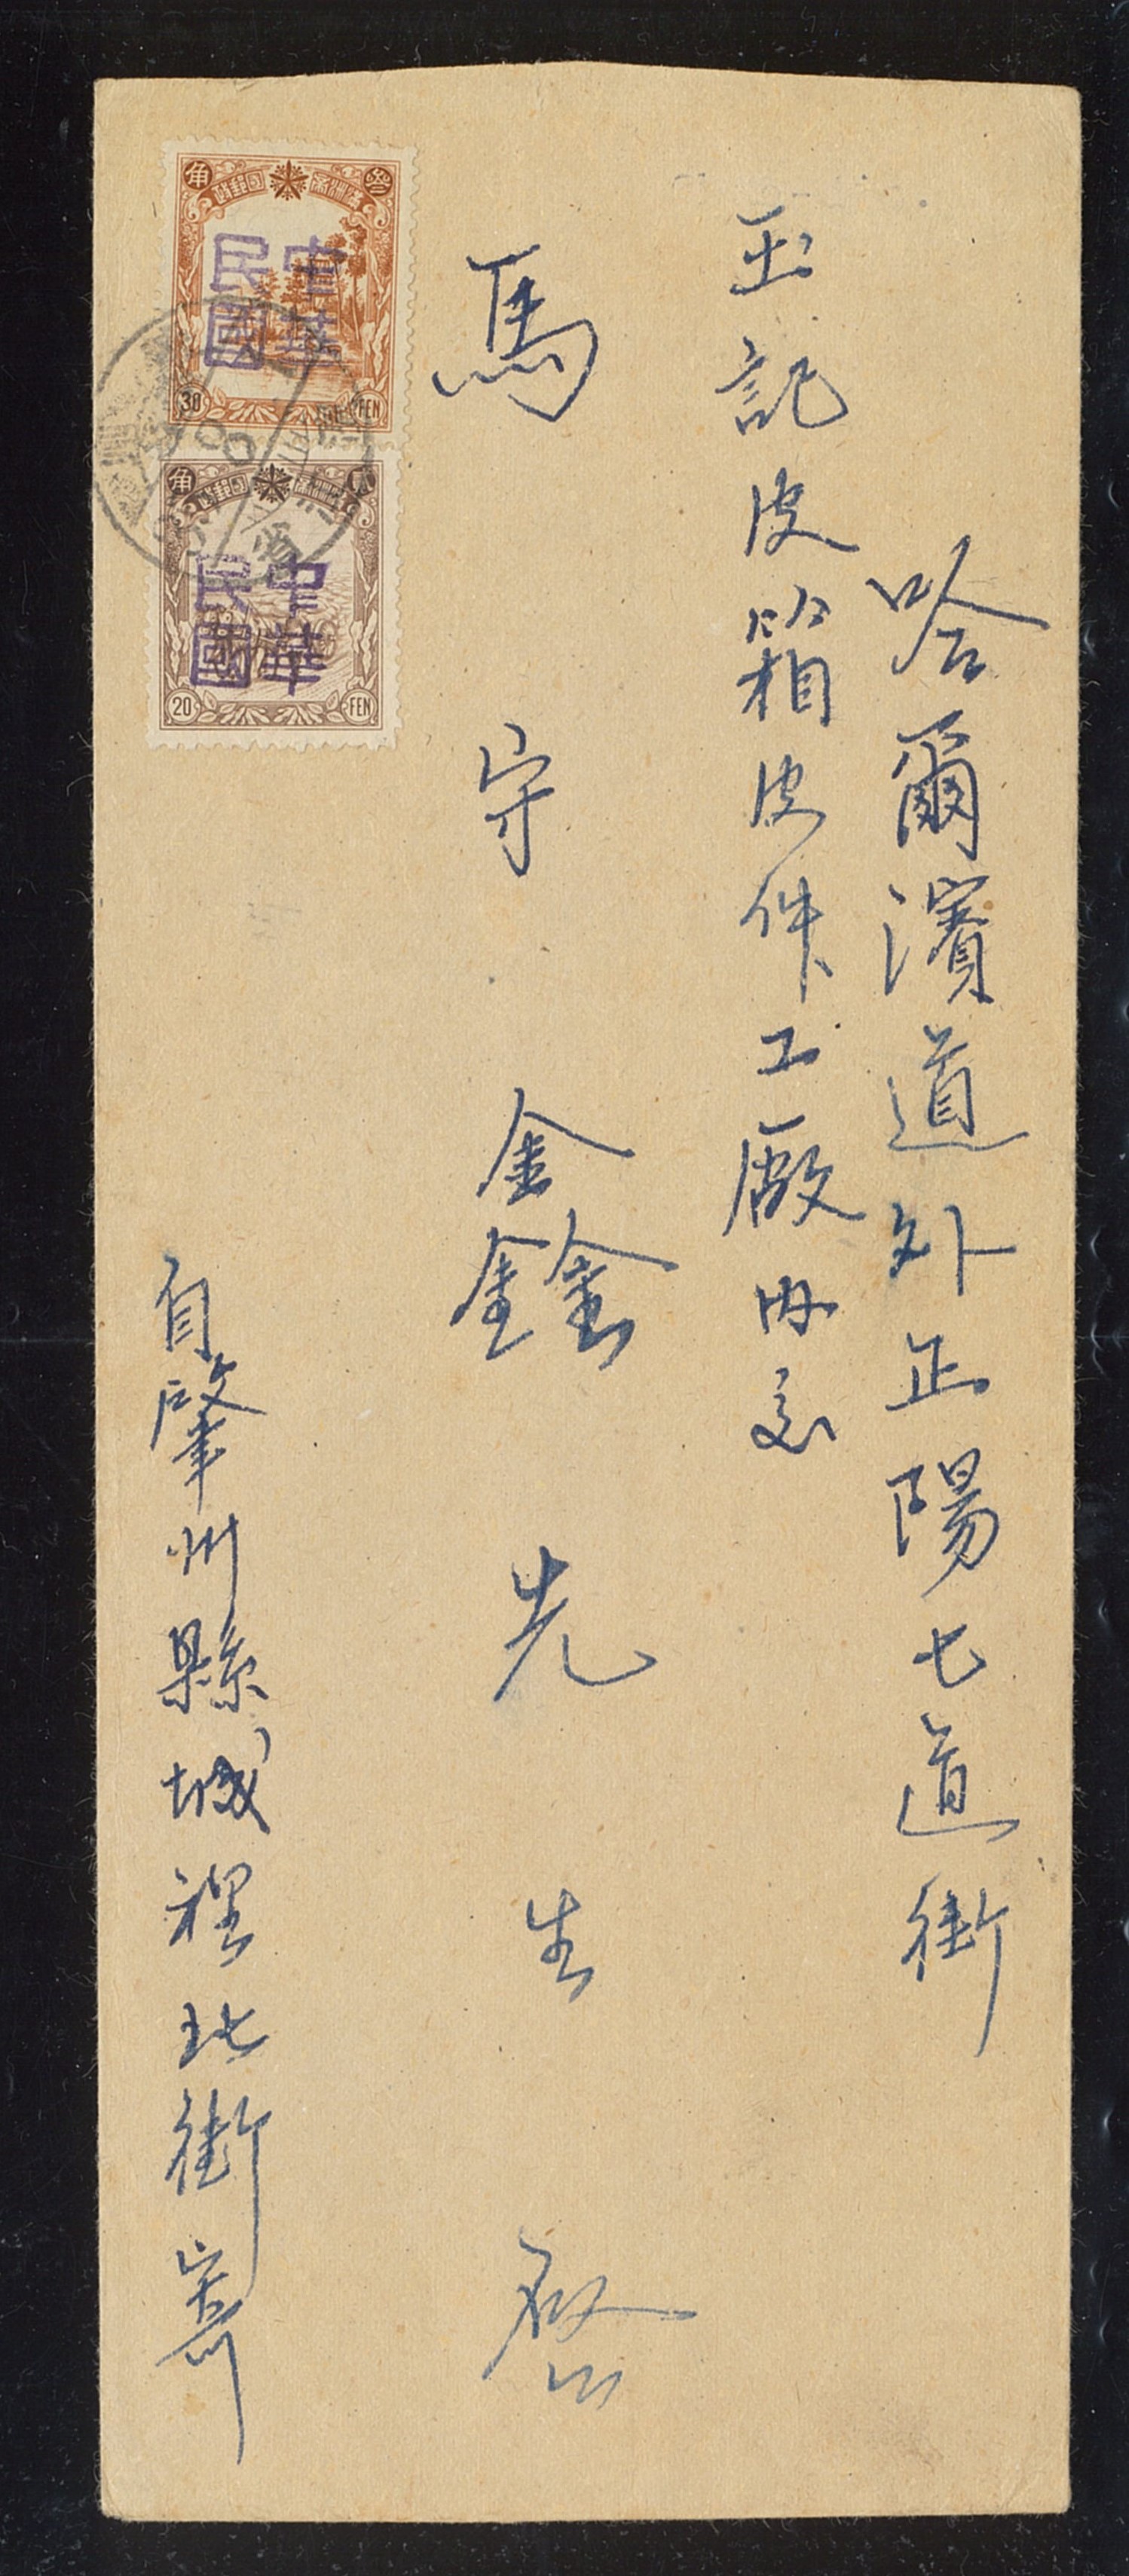 哈爾濱道外正陽七道街
玉記皮箱皮件工廠內交
馬守鑫先生啟
自肇州縣城裡北街寄
角 叁
滿洲國郵政
中華
民國
30 FEN
角 貳
滿洲國郵政
中華
民國
20 FEN